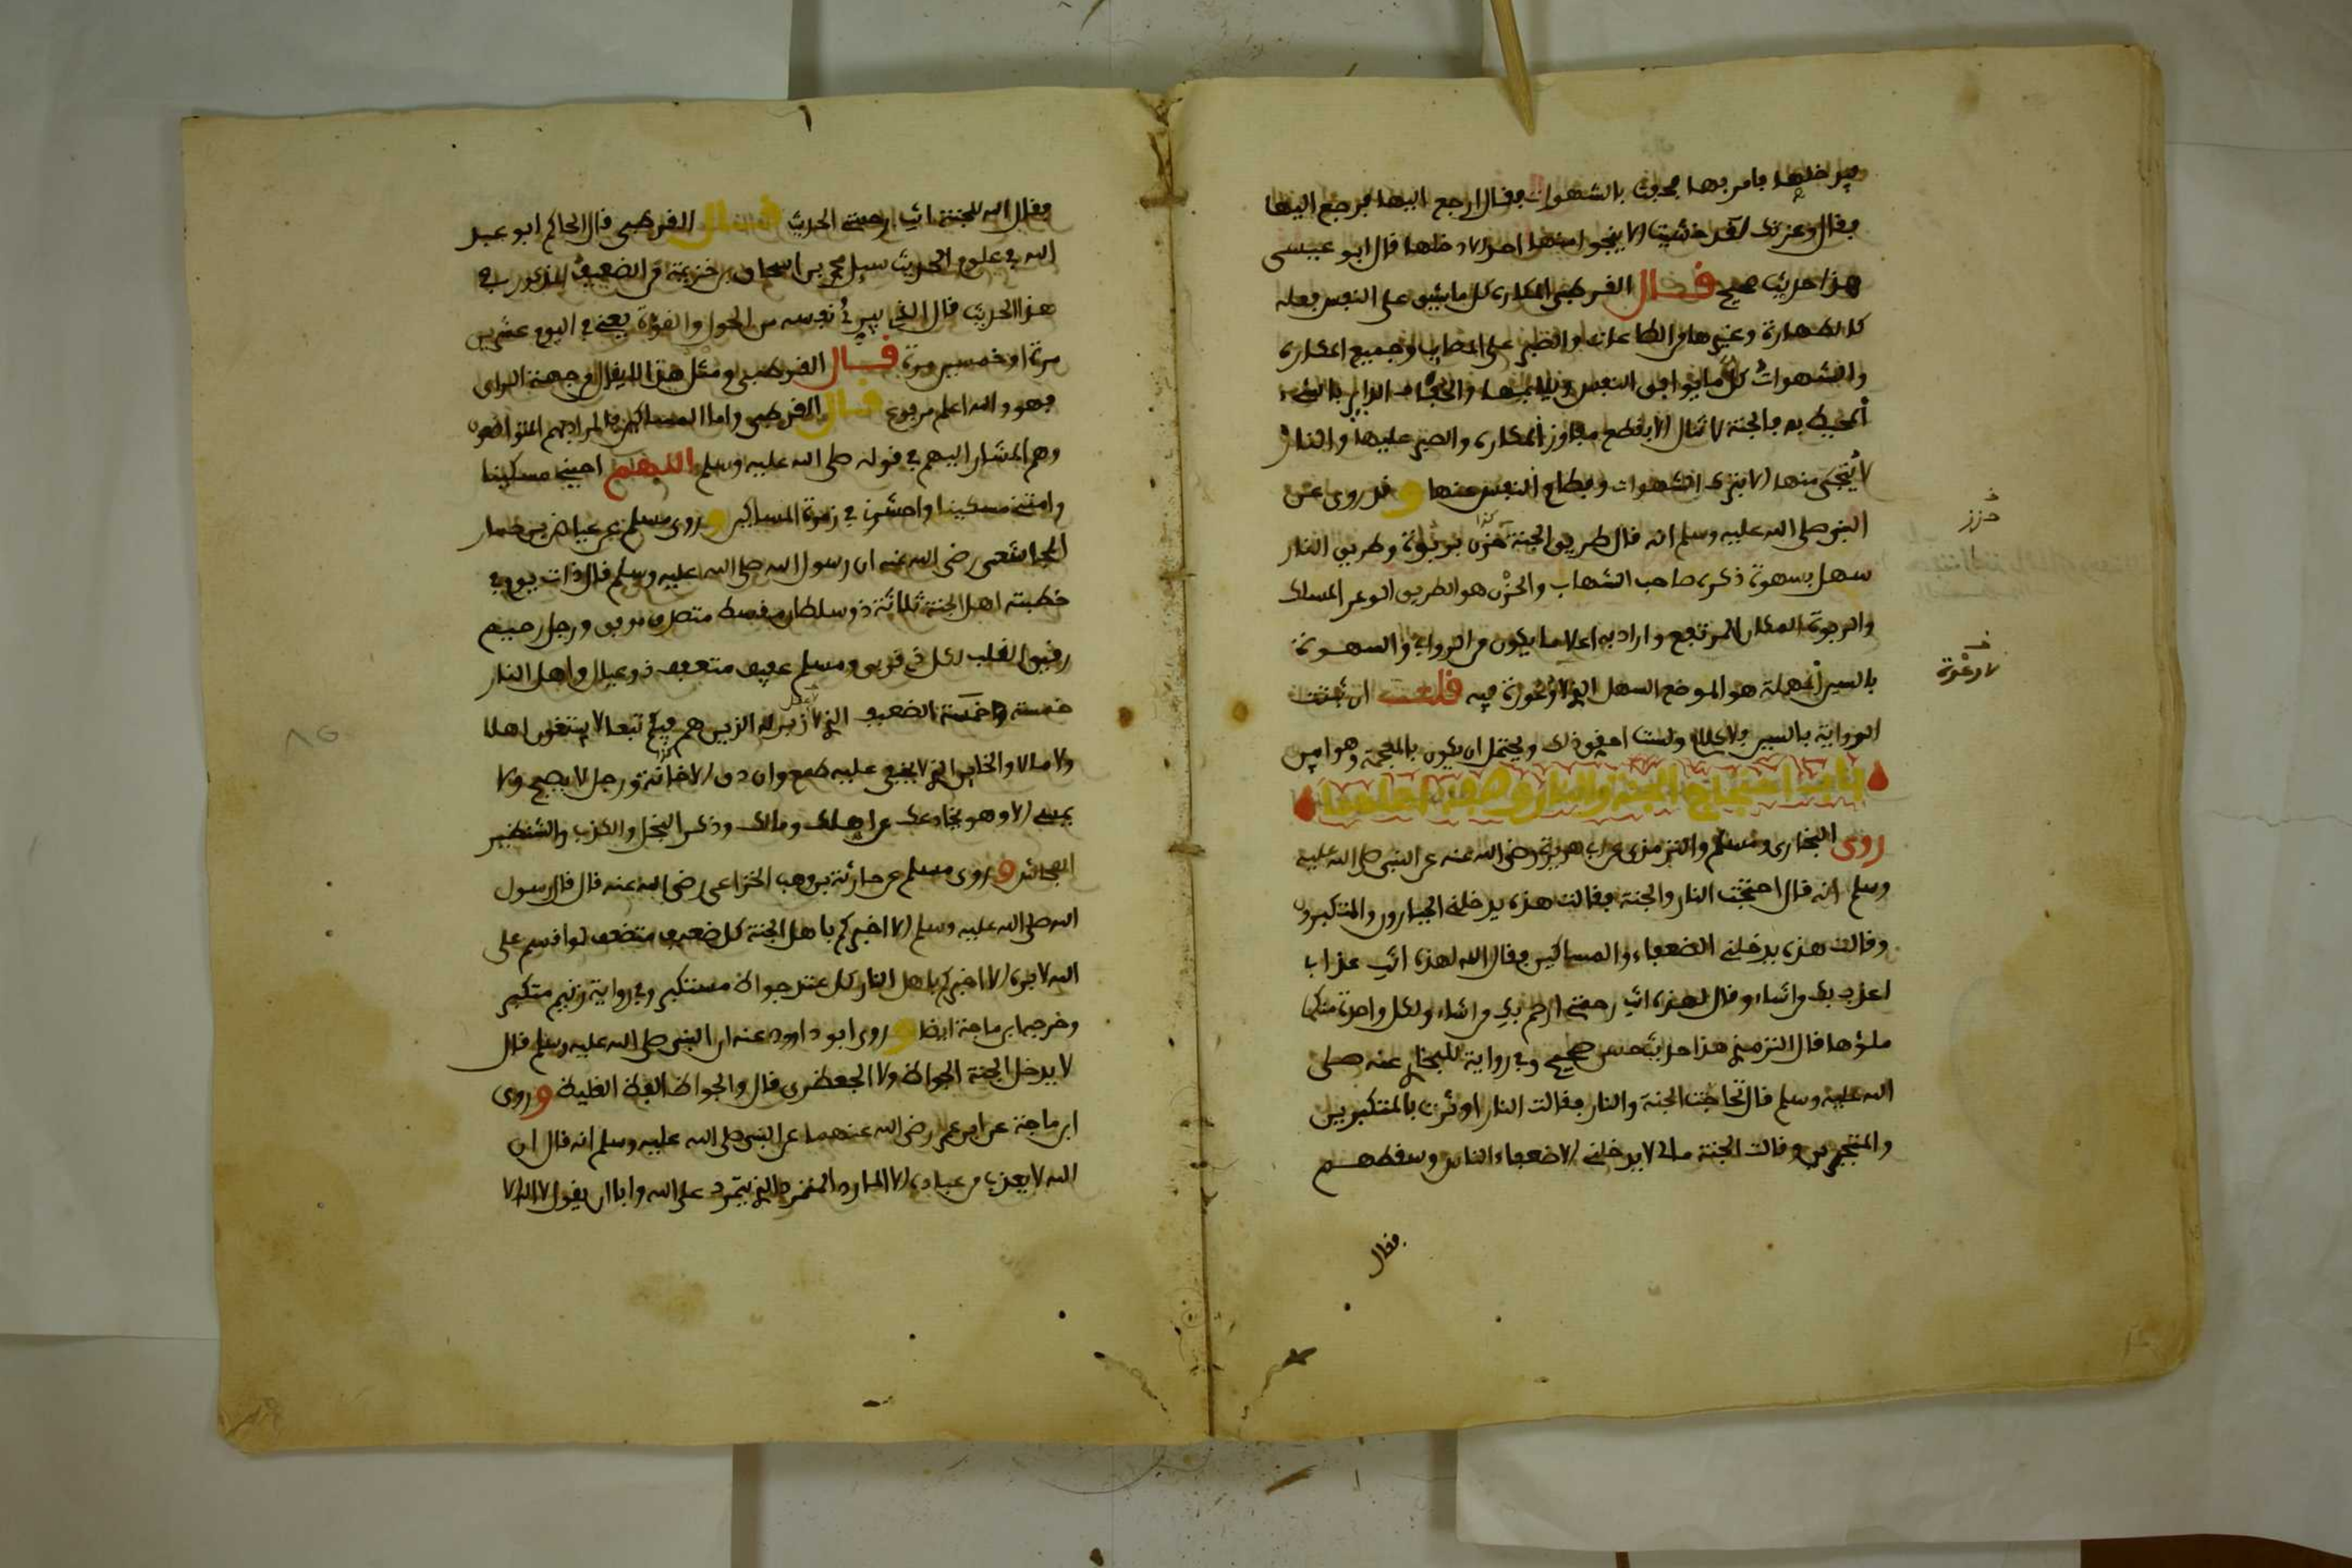 فيدخلها فامر بها فحفت بالشهوات فقال ارجع اليها فرجع اليها
فقال وعزتك لقد خشيت الا ينجو منها احد الا دخلها قال ابو عيسى
هذا حديث صحيح قال القرطبي المكاره كل ما يشق على النفس فعله
كالطهارة وغيرها من الطاعات والصبر على المصايب وجميع المكاره
والشهوات كل ما يوافق النفس ويلايمها والحفاف الداير بالشيء
المحيط به فالجنة لا تنال الا بقطع مفاوز المكاره والصبر عليها والنار
لا ينجى منها الا بترك الشهوات وفطام النفس عنها وقد روي عن
النبي صلى الله عليه وسلم انه قال طريق الجنة حزن بربوة وطريق النار
سهل بسهوة ذكره صاحب الشهاب والحزن هو الطريق الوعر المسلك
والربوة المكان المرتفع واراد به اعلا ما يكون من الروابي والسهوة
بالسين المهملة هو الموضع السهل الذي لا وعورة فيه قلت ان ثبتت
الرواية بالسين فلا كلام ولست احقق ذلك ويحتمل ان يكون بالمعجمة وهو امين
باب احتجاج الجنة والنار وصفة اهلهما
روى البخاري ومسلم والترمذي عن ابي هريرة رضي الله عنه عن النبي صلى الله عليه
وسلم انه قال احتجت النار والجنة فقالت هذه يدخلني الجبارون والمتكبرون
وقالت هذه يدخلني الضعفاء والمساكين فقال الله لهذه انت عذابي
اعذب بك من اشاء وقال لهذه انت رحمتي ارحم بك من اشاء ولكل واحدة منكما
ملؤها قال الترمذي هذا حديث حسن صحيح وفي رواية للبخاري عنه صلى
الله عليه وسلم قال تحاجت الجنة والنار فقالت النار اوثرت بالمتكبرين
والمتجبرين وقالت الجنة مالي لا يدخلني الا ضعفاء الناس وسقطهم
فقال
فقال الله للجنة انت رحمتي الحديث قال القرطبي قال الحاكم ابو عبد
الله في علوم الحديث سيل محمد بن اسحاق بن خزيمة من الضعيف المذكور في
هذا الحديث قال الذي يبرئ نفسه من الحول والقوة يعني في اليوم عشرين
مرة او خمسين مرة قال القرطبي ومثل هذا لا يقال من جهة الراي
فهو والله اعلم مرفوع قال القرطبي واما المساكين فالمراد بهم المتواضعون
وهم المشار اليهم في قوله صلى الله عليه وسلم اللهم احيني مسكينا
وامتني مسكينا واحشرني في زمرة المساكين وروى مسلم عن عياض بن حمار
المجاشعي رضي الله عنه ان رسول الله صلى الله عليه وسلم قال ذات يوم في
خطبته اهل الجنة ثلاثة ذو سلطان مقسط متصدق موفق ورجل رحيم
رقيق القلب لكل ذي قربى ومسلم عفيف متعفف ذو عيال واهل النار
خمسة الضعيف الذي لا زبر له الذين هم فيكم تبعا لا يبتغون اهلا
ولا مالا والخاين الذي لا يخفى عليه طمع وان دق الا خانه ورجل لا يصبح ولا
يمسي الا وهو يخادعك عن اهلك ومالك وذكر البخل والكذب والشنظير
الفحاش وروى مسلم عن حارثة بن وهب الخزاعي رضي الله عنه قال قال رسول
الله صلى الله عليه وسلم الا اخبركم باهل الجنة كل ضعيف متضعف لو اقسم على
الله لابره الا اخبركم باهل النار كل عتل جواظ مستكبر وفي رواية زنيم متكبر
وخرجه ابن ماجة ايضا وروى ابو داوود عنه ان النبي صلى الله عليه وسلم قال
لا يدخل الجنة الجواظ ولا الجعظري قال والجواظ الفظ الغليظ وروى
ابن ماجة عن ابن عمر رضي الله عنهما عن النبي صلى الله عليه وسلم انه قال ان
الله لا يعذب من عباده الا المارد المتمرد الذي يتمرد على الله وابا ان يقول لا اله الا